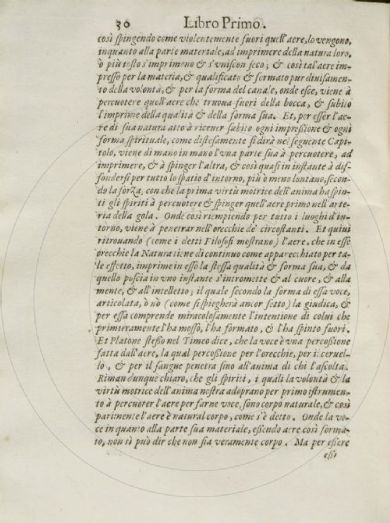 30 Libro Primo.
così spingendo come violentemente fuori quell'aere, lo vengono,
inquanto alla parte materiale, ad imprimere della natura loro,
ò più tosto s'imprimono & s'uniscon seco; & così tal'aere im-
presso per la materia, & qualificato & formato pur divisamen-
to della volontà, & per la forma del canale, onde esce, viene à
percuotere quell'aere che truoua fuori della bocca, & subito
l'imprime della qualità & della forma sua. Et, per esser l'ae-
re di sua natura atto à riceuer subito ogni impressione & ogni
forma spirituale, come distesamente si dirà nel seguente Capi-
tolo, viene di mano in mano l'vna parte sua à percuotere, ad
imprimere, & à spinger l'altra, & così quasi in instante à dif-
fondersi per tutto lo spatio d'intorno, più ò meno lontano, secon-
do la forza, con che la prima virtù motrice dell'anima ha spin-
ti gli spiriti à percuotere & spinger quell'aere primo nell'arte-
ria della gola. Onde così riempiendo per tutto i luoghi d'in-
torno, viene à penetrar nell'orecchie de' circostanti. Et quiui
ritrouando (come i detti Filosofi mostrano) l'aere, che in esse
orecchie la Natura tiene di continuo come apparecchiato per ta-
le effetto, imprime in esso la stessa qualità & forma sua, & da
quello poscia in vno instante s'intromette & al cuore, & alla
mente, & all'intelletto; il quale secondo la forma di essa voce,
articolata, ò nò (come si spiegherà ancor sotto) la giudica, &
per essa comprende miracolosamente l'intentione di colui che
primieramente l'ha mosso, l'ha formato, & l'ha spinto fuori.
Et Platone stesso nel Timeo dice, che la voce è vna percussione
fatta dall'aere, la qual percussione per l'orecchie, per il ceruel-
lo, & per il sangue penetra fino all'anima di chi l'ascolta.
Riman dunque chiaro, che gli spiriti, i quali la volontà & la
virtù motrice dell'anima nostra adoprano per primo istrumen-
to à percuoter l'aere per farne voce, sono corpo naturale, & così
parimente l'aere è natural corpo, come s'è detto. Onde la vo-
ce in quanto alla parte sua materiale, essendo aere così forma-
to, non si può dir che non sia veramente corpo. Ma per essere
essi